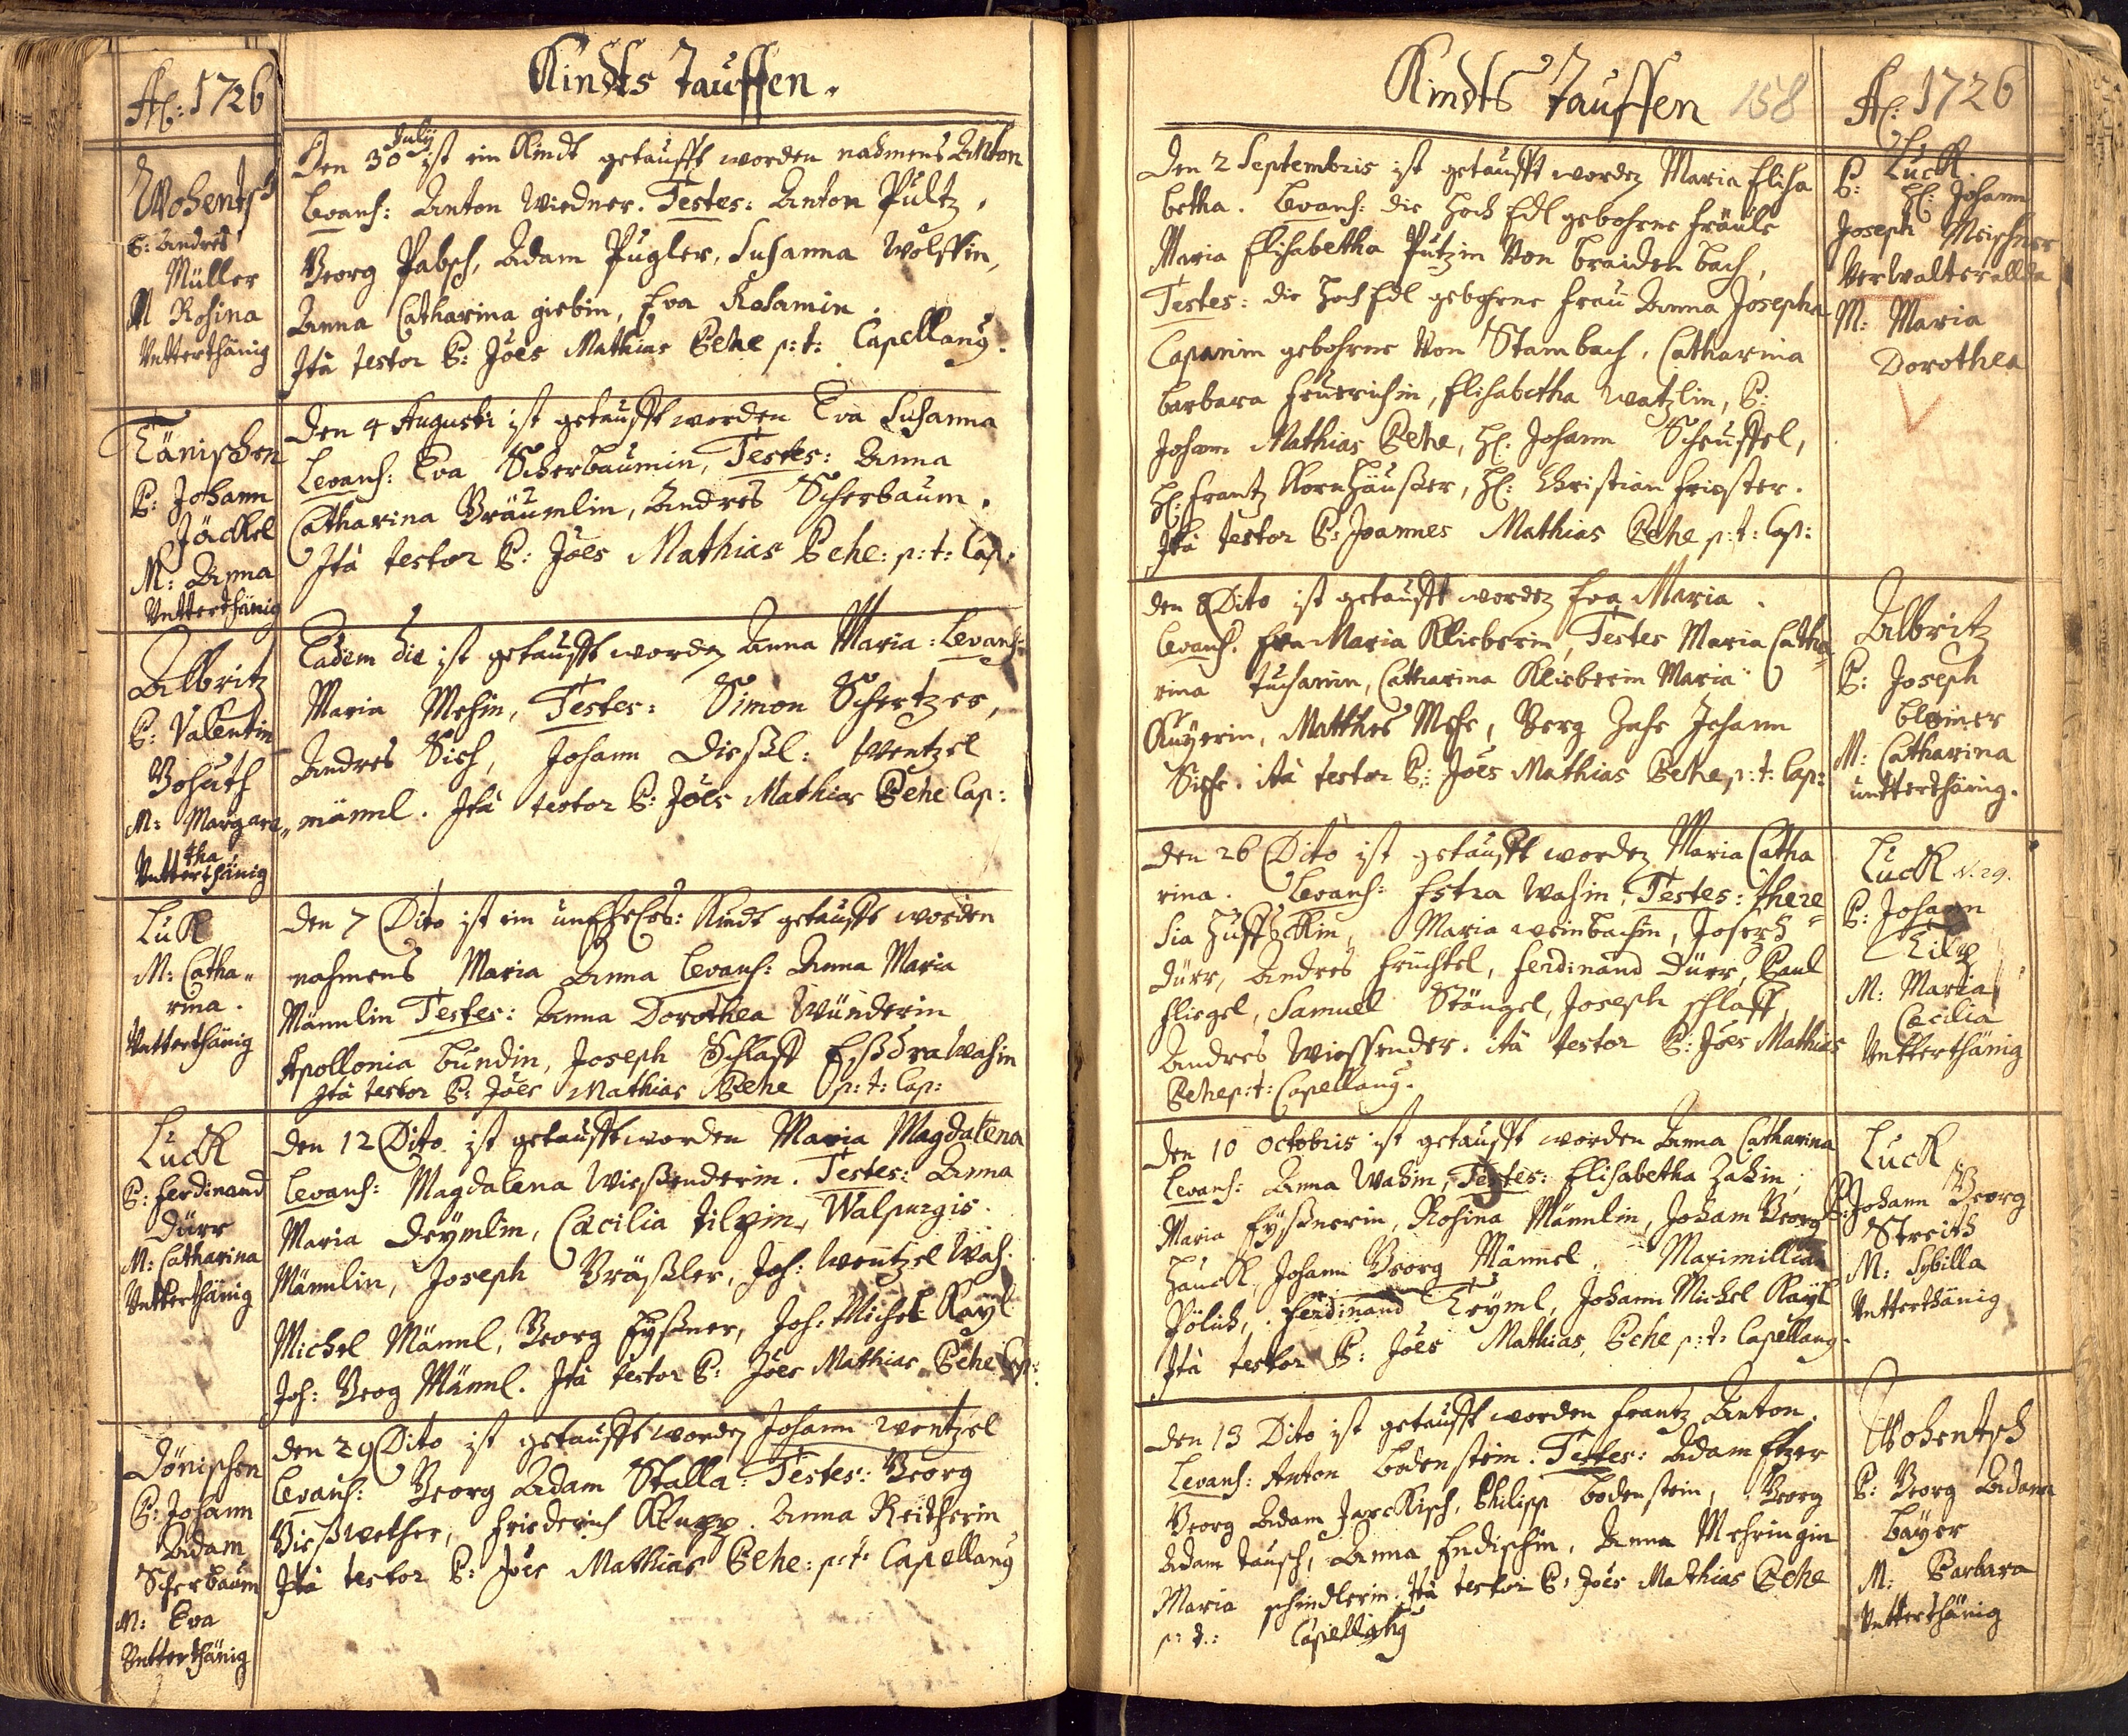 Kindts Tauffen.
Aõ: 1726
Wohentsch
P: Andres
Müller
M Rosina
Untterthänig
Den 30 July ist ein Kindt getaufft worden nahmens Anton
Levans: Anton Wiedner. Testes: Anton Pultz,
Georg Pabsch, Adam Pugler, Susanna Wolffin,
Anna Catharina giebin, Eva Rosamin.
Ità testor P: Joes Mathias Pehe p: t: Capellanus.
Tänischen
P: Johann
Jäckel
M: Anna
Untterthänig
Den 4 Augusti ist getaufft worden Eva Susanna
Levans: Eva Scherbaumin, Testes: Anna
Catharina Bräumlin, Andres Scherbaum.
Ità testor P: Joes Mathias Pehe: p: t: Cap:
Albritz
P: Valentin
Bohuth
M: Margare„
tha
Untterthänig
Eadem die ist getaufft worden Anna Maria: Levans:
Maria Mehin, Testes: Simon Schertzer,
Andres Sich, Johann Dießl: Wentzel
männl. Ità testor P: Joes Mathias Pehe Cap:
Luck
M: Catha„
rina.
Untterthänig
Den 7 Dito ist ein unEheles: Kindt getaufft worden
nahmens Maria Anna Levans: Anna Maria
Männlin Testes: Anna Dorothea Wünderin
Apollonia Bundin, Joseph Schlaff Eßdra Wahin
Ità testor P: Joes Mathias Pehe p: t: Cap:
Luck
P: Ferdinand
Dürr
M: Catharina
Untterthänig
Den 12 Dito ist getaufft worden Maria Magdalena
Levans: Magdalena Wießenderin. Testes: Anna
Maria Deymlin, Cæcilia Tilpin, Walpurgis
Männlin, Joseph Bräßler, Joh: Wentzel Wah.
Michel Männl, Georg Eyßner, Joh: Michel Kayl
Joh: Georg Männl. Ità testor P: Joes Mathias Pehe Cap:
Dönischen
P: Johann
Adam
Scherbaum
M: Eva
Untterthänig
Den 29 Dito ist getaufft worden Johann Wentzel
Levans: Georg Adam Stalla: Testes: Georg
Bießwether, Friederich Knapp. Anna Reitherin
Ità testor P: Joes Mathias Pehe: p: t: Capellanus
Kindts Tauffen 158
Aõ: 1726
Den 2 Septembris ist getaufft worden Maria Elisa
betha. Levans: die Hoch Edl gebohrne Fräule
Maria Elisabetha Putzin Von Braiden bach,
Testes: die Hoch Edl gebohrne Frau Anna Josepha
Caparim gebohrne Von Stambach, Catharina
Barbara Heurichin, Elisabetha Watzlin, P:
Johann Mathias Pehe, H: Johann Scheuffel,
H: Frantz Kornhäußer, H: Christian Friester.
Ità testor P: Joannes Mathias Pehe p: t: Cap:
Luck.
P: H: Johann
Joseph Meichner
Verwalter allda
M: Maria
Dorothea
Den 8 Dito ist getaufft worden Eva Maria.
Levans. Eva Maria Klieberin, Testes Maria Catha„
rina Tuchanin, Catharina Klieberin Maria
Kuyerin, Matthes Mehe, Georg Jahe Johann
Sicher. ità testor P: Joes Mathias Pehe, p: t: Cap:
Albritz
P: Joseph
Bleiner
M: Catharina
untterthänig.
Den 26 Dito ist getaufft worden Maria Catha
rina. Levans: Estra Wahin, Testes: There=
sia Hufftkin, Maria weinbachin, Joseph
Dürr, Andres Fruchtel, Ferdinand Dürr, Paul
Fliegel, Samuel Stängel, Joseph schlaff,
Andres Wiessender. ità testor P: Joes Mathias
Pehe p: t: Capellanus.
Luck N. 29.
P: Johann
Tilp
M: Maria
Cæcilia
Untterthänig
Den 10 Octobris ist getaufft worden Anna Catharina
Levans: Anna Wahin, Testes: Elisabetha Zahin,
Maria Eyßnerin, Rosina Männlin, Johann Georg
Hauck, Johann Georg Männel, Maximillian
Pölich, Ferdinand Teyml, Johann Michel Kayl
Ità testor P: Joes Mathias Pehe p: t: Capellanus.
Luck
P: Johann Georg
Streith
M: Sybilla
Untterthänig
Den 13 Dito ist getaufft worden Frantz Anton.
Levans: Anton Bodenstein. Testes: Adam Etzer
Georg Adam Jarckisch, Philipp Bodenstein, Georg
Adam Tausch, Anna Endischin, Anna Mehringin
Maria schindlerin. Ità testor P: Joes Mathias Pehe
p: t.: Capellanus
Wohentsch
P: Georg Adam
Bäyer
M: Barbara
Untterthänig